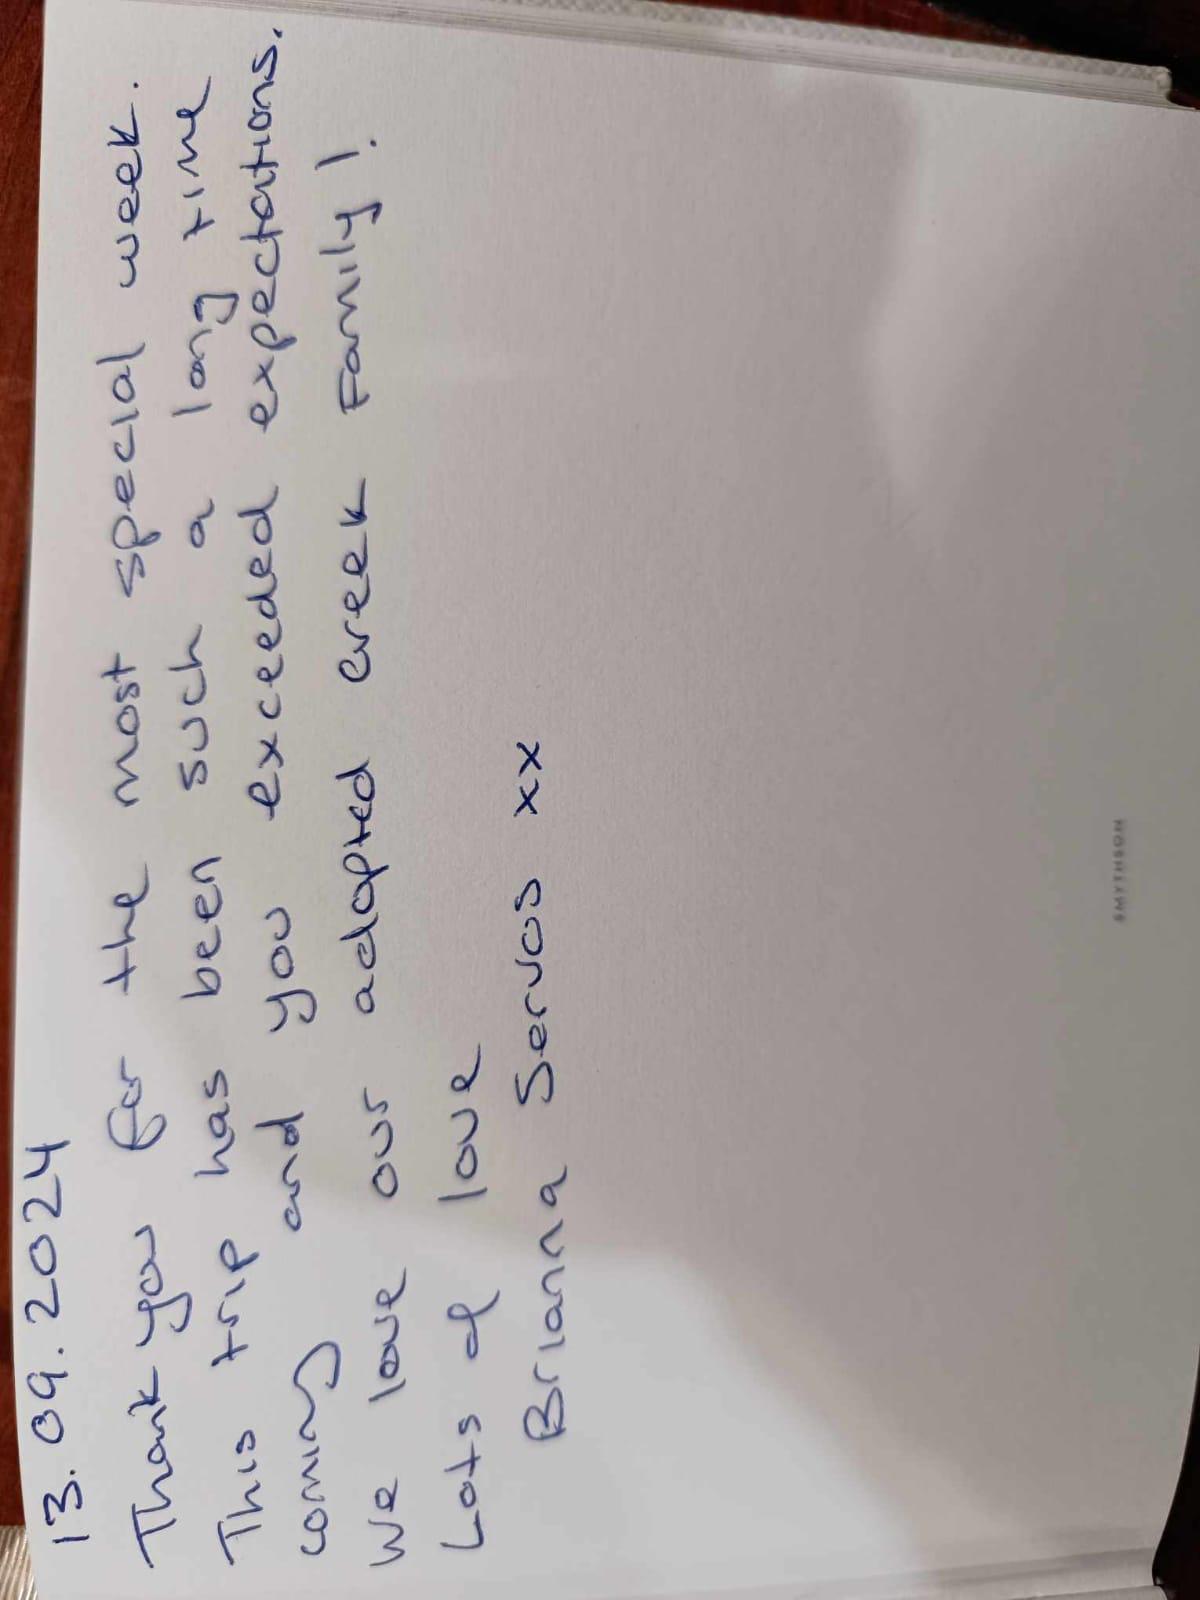 13.09.2024
Thank you for the most special week.
This trip has been such a long time
coming and you exceeded expectations.
We love our adopted Greek Family!
Lots of love
Brianna Servos xx
SMYTHSON